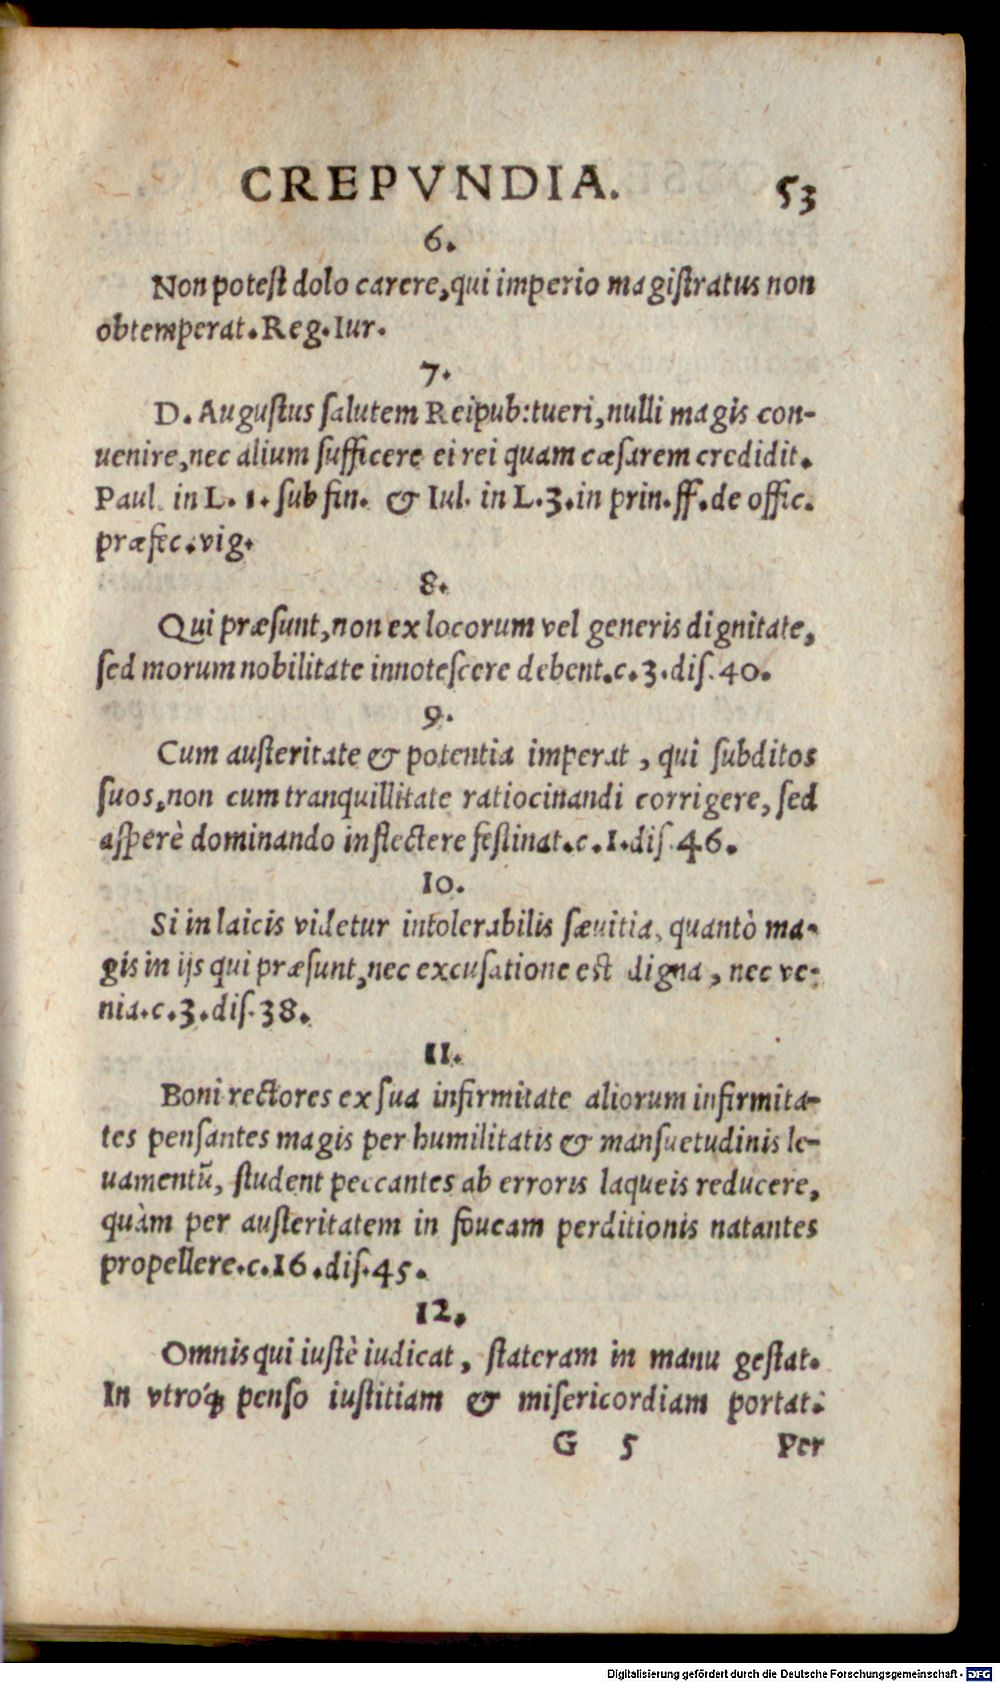 CREPVNDIA. 53
6.
Non potest dolo carere, qui imperio magistratus non
obtemperat. Reg. Iur.
7.
D. Augustus salutem Reipub: tueri, nulli magis con-
uenire, nec alium sufficere ei rei quam cæsarem credidit.
Paul. in L. 1. sub fin. & Iul. in L. 3. in prin. ff. de offic.
præfec. vig.
8.
Qui præsunt, non ex locorum vel generis dignitate,
sed morum nobilitate innotescere debent. c. 3. dis. 40.
9.
Cum austeritate & potentia imperat, qui subditos
suos, non cum tranquillitate ratiocinandi corrigere, sed
asperè dominando inflectere festinat. c. 1. dis. 46.
10.
Si in laicis videtur intolerabilis sæuitia, quantò ma-
gis in ijs qui præsunt, nec excusatione est digna, nec ve-
nia. c. 3. dis. 38.
11.
Boni rectores ex sua infirmitate aliorum infirmita-
tes pensantes magis per humilitatis & mansuetudinis le-
uamentũ, student peccantes ab erroris laqueis reducere,
quàm per austeritatem in foueam perditionis natantes
propellere. c. 16. dis. 45.
12.
Omnis qui iustè iudicat, stateram in manu gestat.
In vtróq; penso iustitiam & misericordiam portat:
G 5 Per
Digitalisierung gefördert durch die Deutsche Forschungsgemeinschaft - DFG